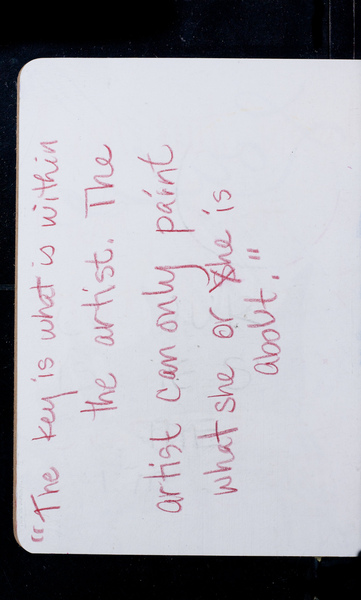 "The key is what is within
the artist. The
artist can only paint
what she or he is
about."